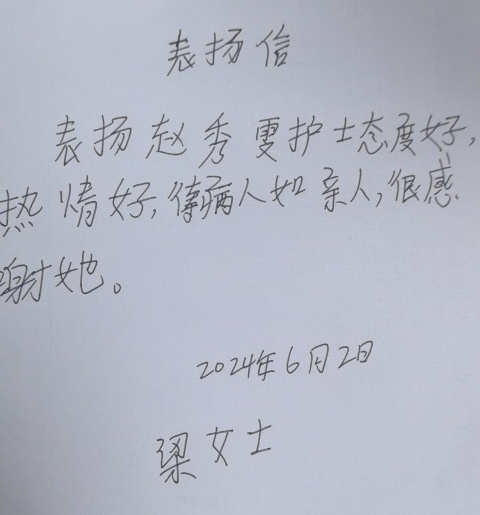 表扬信
表扬赵秀雯护士态度好,
热情好,待病人如亲人,很感
谢她。
2024年6月2日
梁女士